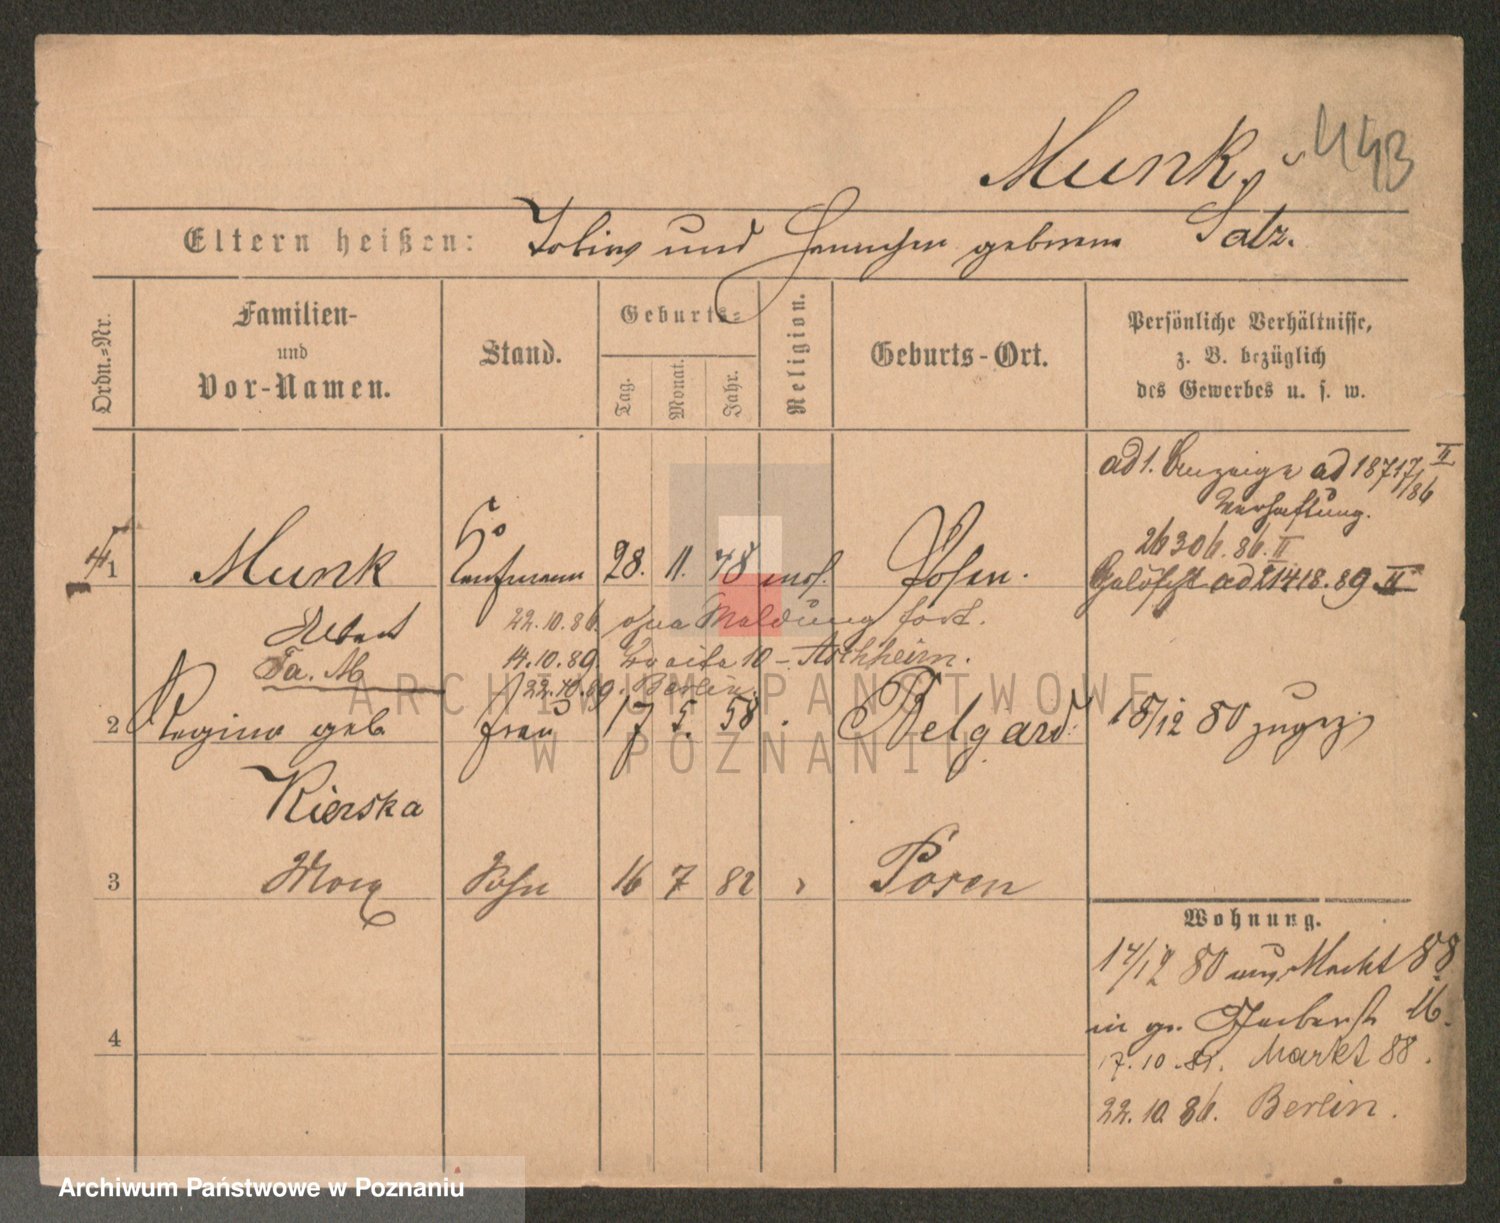 Munk, 443
Eltern heißen: Tobias und Hannchen geborene Salz.
Ordn.=Nr.
Familien-
und
Vor-Namen.
Stand.
Geburts=
Tag.
Monat.
Jahr.
Religion.
Geburts-Ort.
Persönliche Verhältnisse,
z. B. bezüglich
des Gewerbes u. s. w.
ad 1. Anzeige ad 18717/86 II
Verhaftung.
26306.86.II
Gelöscht ad 21418.89 II
1 Munk Kaufmann 28. 11. 48 mos. Posen.
Albert
22.10.86. ohne Meldung fort.
Fa. M
14.10.89. Breite 10 - Aschheim.
22.10.89. Berlin.
2 Regina geb. Frau 17 5. 58 Belgard. 18/12 80 zugez.
Kierska
3 Sohn 16 7 82 Posen
Wohnung.
17/12 80 aus Markt 88
in gr. Gerberst 16.
17.10.81. Markt 88.
22.10.86. Berlin.
4
ARCHIWUM PAŃSTWOWE
W POZNANIU
Archiwum Państwowe w Poznaniu